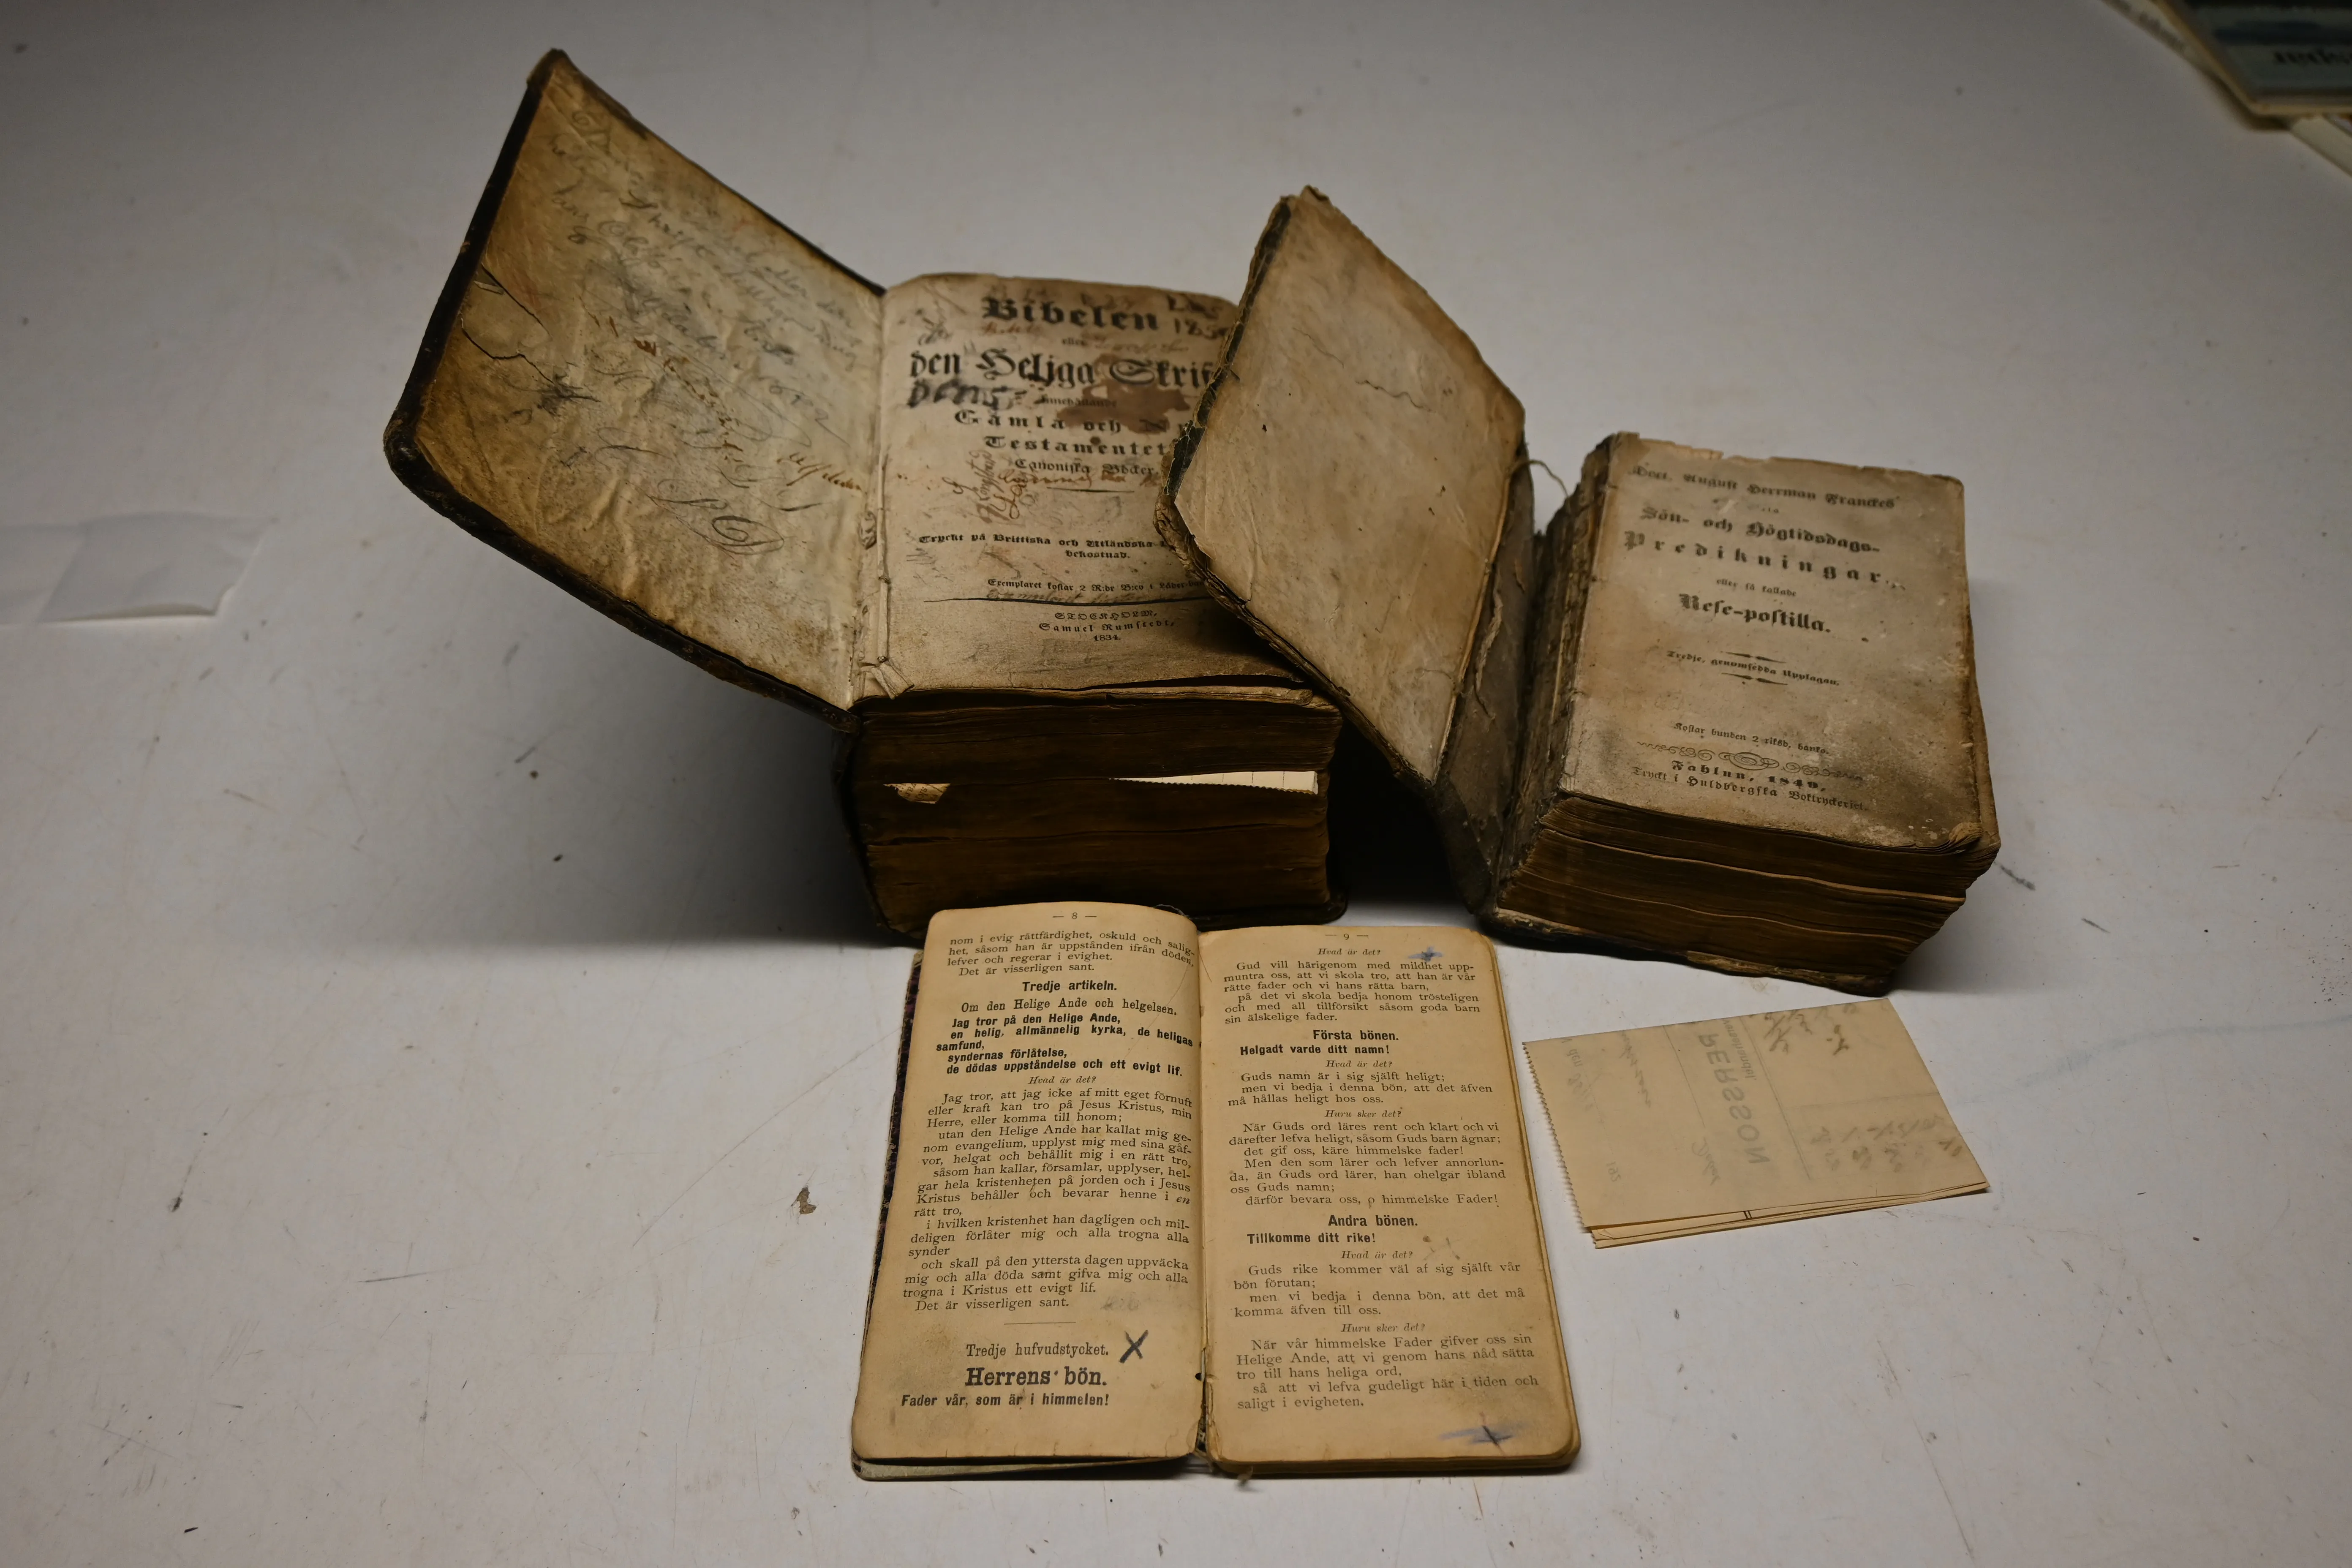 Bibelen
eller
den Heliga Skrift
innehållande
Gamla och
Testamentets
Canoniska Böcker
Tryckt på Brittiska och Utländska
bekostnad.
Exemplaret kostar 2 R:dr B:co i
STOCKHOLM,
Samuel Rumstedt,
1834.
Doct. August Herrman Franckes
Sön- och Högtidsdags-
Predikningar,
eller så kallade
Rese-postilla.
Tredje, genomsedda Upplagan.
Kostar bunden 2 riksd. banko.
Fahlun, 1849,
Tryckt i Huldbergska Boktryckeriet.
— 8 —
nom i evig rättfärdighet, oskuld och salig-
het, såsom han är uppstånden ifrån döden,
lefver och regerar i evighet.
Det är visserligen sant.
Tredje artikeln.
Om den Helige Ande och helgelsen.
Jag tror på den Helige Ande,
en helig, allmännelig kyrka, de heligas
samfund,
syndernas förlåtelse,
de dödas uppståndelse och ett evigt lif.
Hvad är det?
Jag tror, att jag icke af mitt eget förnuft
eller kraft kan tro på Jesus Kristus, min
Herre, eller komma till honom;
utan den Helige Ande har kallat mig ge-
nom evangelium, upplyst mig med sina gåf-
vor, helgat och behållit mig i en rätt tro,
såsom han kallar, församlar, upplyser, hel-
gar hela kristenheten på jorden och i Jesus
Kristus behåller och bevarar henne i en
rätt tro,
i hvilken kristenhet han dagligen och mil-
deligen förlåter mig och alla trogna alla
synder
och skall på den yttersta dagen uppväcka
mig och alla döda samt gifva mig och alla
trogna i Kristus ett evigt lif.
Det är visserligen sant.
Tredje hufvudstycket. X
Herrens bön.
Fader vår, som är i himmelen!
— 9 —
Hvad är det?
Gud vill härigenom med mildhet upp-
muntra oss, att vi skola tro, att han är vår
rätte fader och vi hans rätta barn,
på det vi skola bedja honom trösteligen
och med all tillförsikt såsom goda barn
sin älskelige fader.
Första bönen.
Helgadt varde ditt namn!
Hvad är det?
Guds namn är i sig själft heligt;
men vi bedja i denna bön, att det äfven
må hållas heligt hos oss.
Huru sker det?
När Guds ord läres rent och klart och vi
därefter lefva heligt, såsom Guds barn ägnar;
det gif oss, käre himmelske fader!
Men den som lärer och lefver annorlun-
da, än Guds ord lärer, han ohelgar ibland
oss Guds namn;
därför bevara oss, o himmelske Fader!
Andra bönen.
Tillkomme ditt rike!
Hvad är det?
Guds rike kommer väl af sig själft vår
bön förutan;
men vi bedja i denna bön, att det må
komma äfven till oss.
Huru sker det?
När vår himmelske Fader gifver oss sin
Helige Ande, att vi genom hans nåd sätta
tro till hans heliga ord,
så att vi lefva gudeligt här i tiden och
saligt i evigheten.
PERSSON